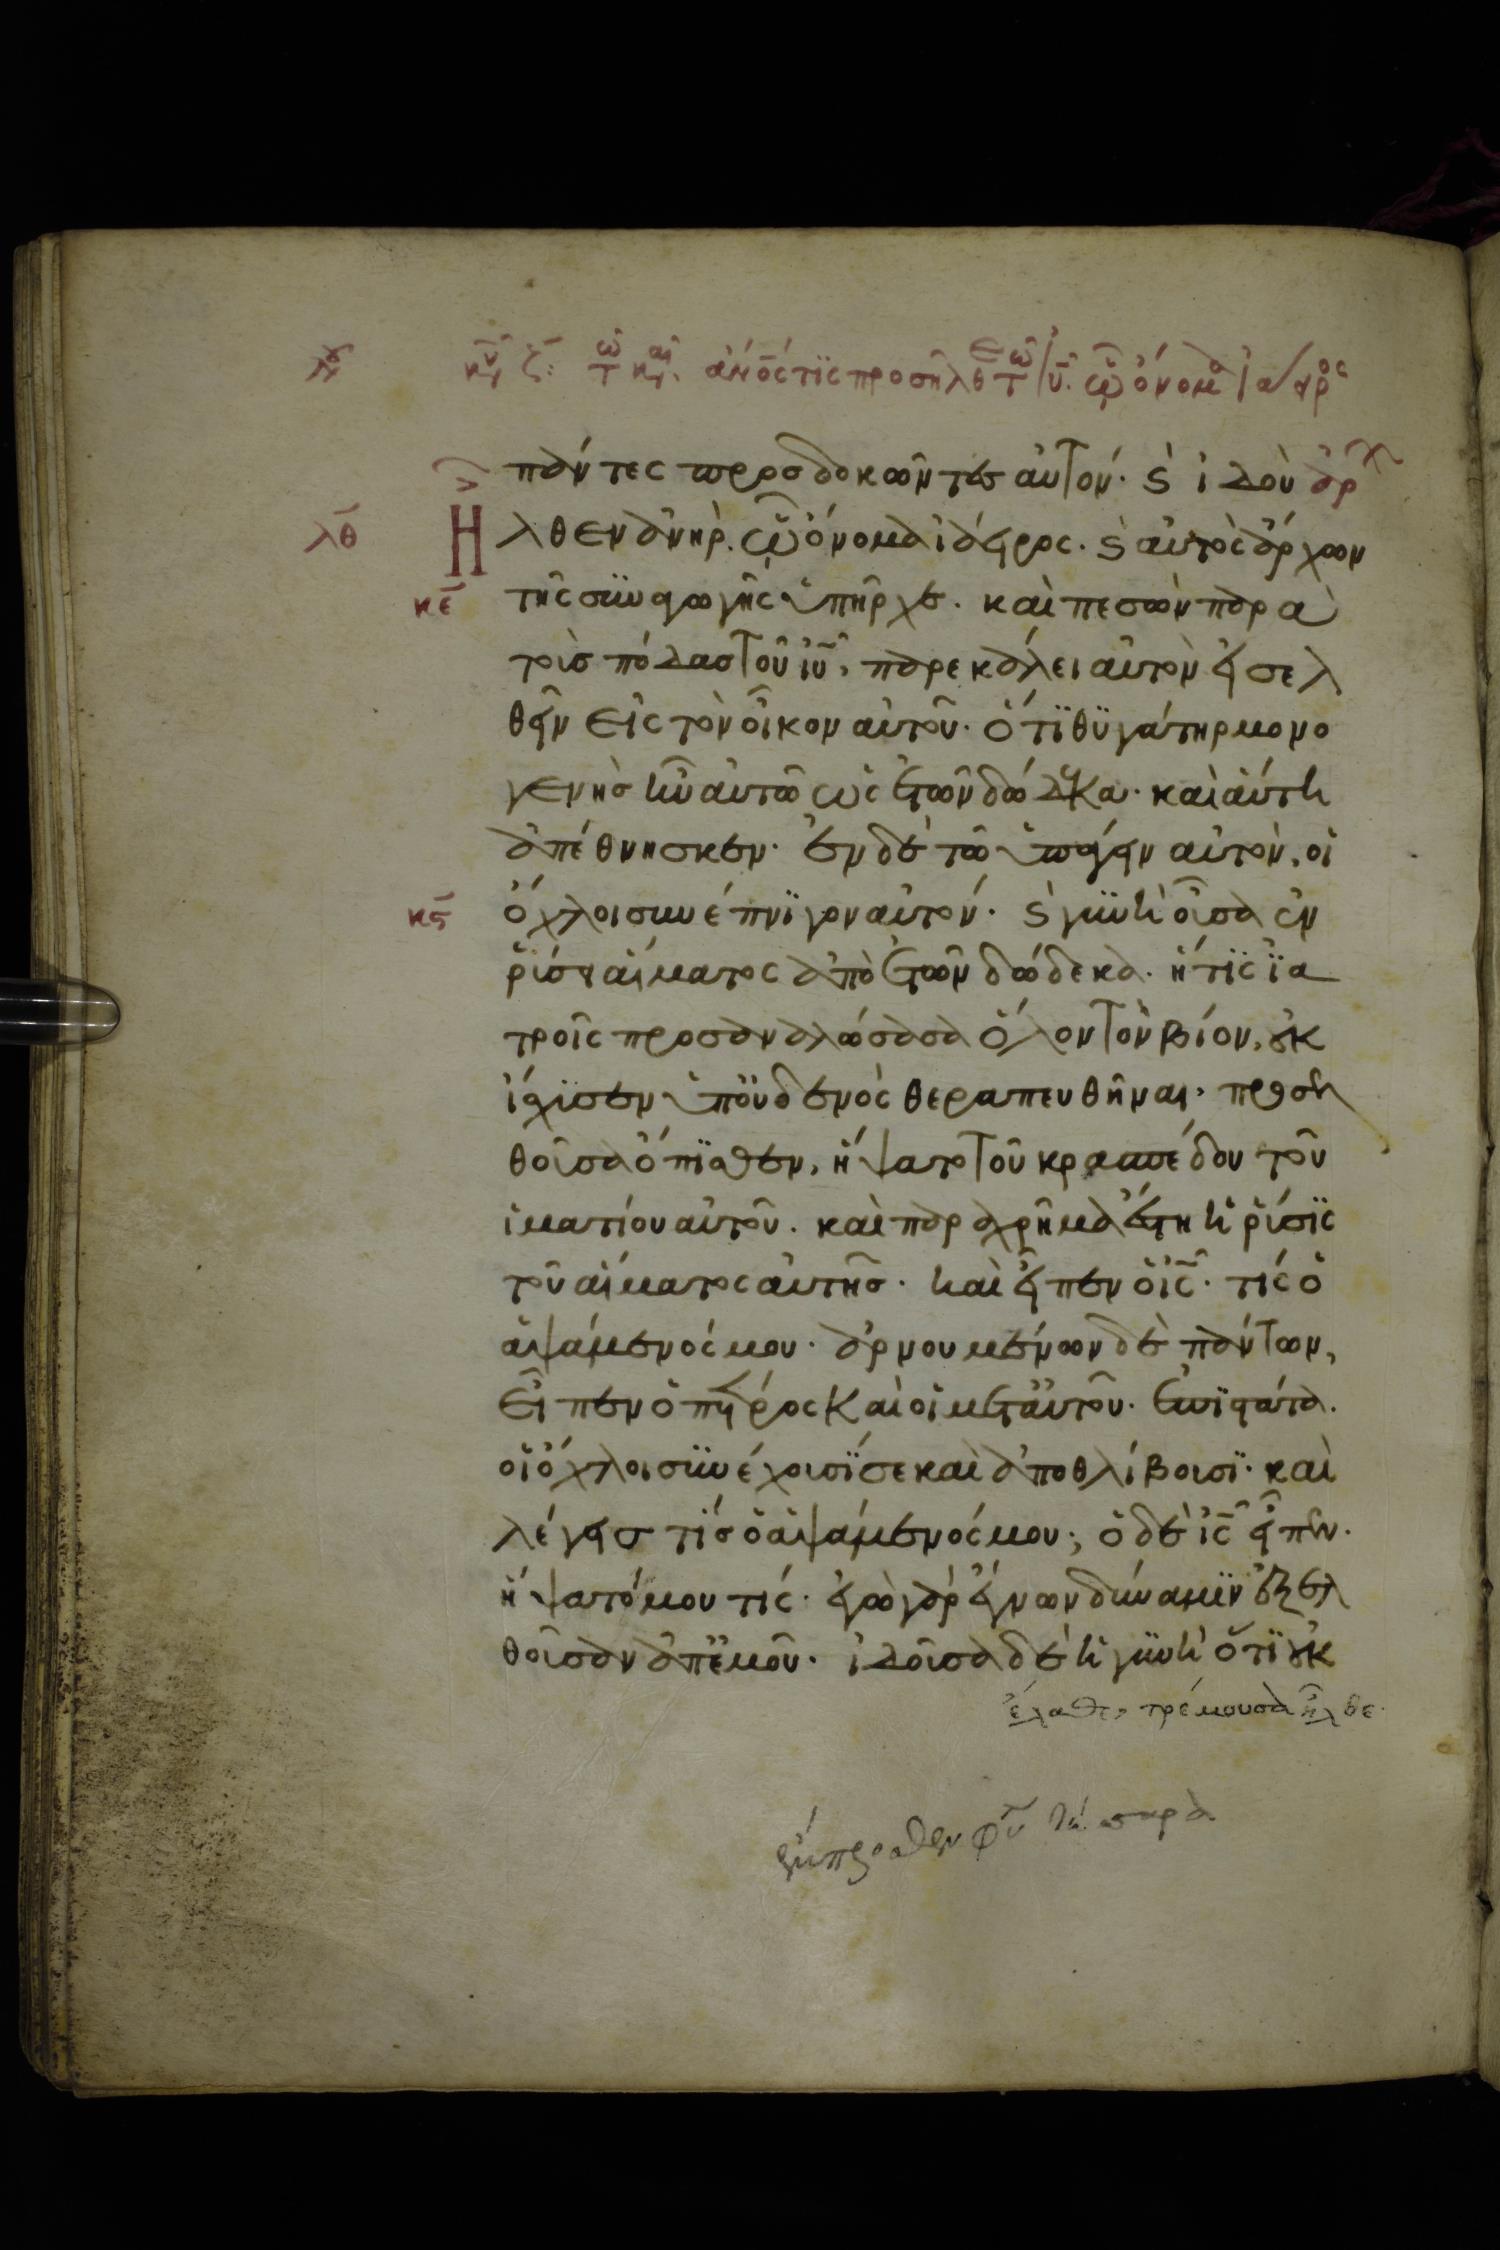 κυ ζ: τω και. ανος τις προσηλθε τω ιυ. ὧ ὄνομα ἰάειρος
πάντες προσδοκῶντες αὐτόν· ϛ ἰδοὺ ἀρχ
λθ Ἦλθεν ἀνὴρ. ᾧ ὄνομα ἰάειρος· ϛ αὐτὸς ἄρχων
κε τῆς συναγωγῆς ὑπῆρχε. καὶ πεσὼν παρὰ
τοὺς πόδας τοῦ ιυ, παρεκάλει αὐτὸν εἰσελ
θεῖν εἰς τὸν οἶκον αὐτοῦ. ὅτι θυγάτηρ μονο
γενὴς ἦν αὐτῶ ὡς ἐτῶν δώδεκα. καὶ αὕτη
ἀπέθνησκεν. ἐν δὲ τῶ ὑπάγειν αὐτὸν, οἱ
κϛ ὄχλοι συνέπνιγον αὐτόν. ϛ γυνὴ οὖσα ἐν
ῥύσει αἵματος ἀπὸ ἐτῶν δώδεκα. ἥτις ἰα
τροῖς προσαναλώσασα ὅλον τὸν βίον, οὐκ
ἴσχυσεν ὑπ οὐδενὸς θεραπευθῆναι, προσελ
θοῦσα ὄπισθεν, ἥψατο τοῦ κρασπέδου τοῦ
ἱματίου αὐτοῦ. καὶ παραχρῆμα ἔστη ἡ ῥύσις
τοῦ αἵματος αὐτῆς. καὶ εἶπεν ὁ ις. τίς ὁ
ἁψάμενός μου. ἀρνουμένων δὲ πάντων,
εἶπεν ὁ πέτρος καὶ οἱ μετ αὐτοῦ. ἐπιστάτα.
οἱ ὄχλοι συνέχουσί σε καὶ ἀποθλίβουσι. καὶ
λέγεις τίς ὁ ἁψάμενός μου; ὁ δὲ ις εἶπεν.
ἥψατό μου τίς. ἐγὼ γὰρ ἔγνων δύναμιν ἐξελ
θοῦσαν ἀπ ἐμοῦ. ἰδοῦσα δὲ ἡ γυνὴ ὅτι οὐκ
ἔλαθε, τρέμουσα ἦλθε.
ἔμπροσθεν παρὰ